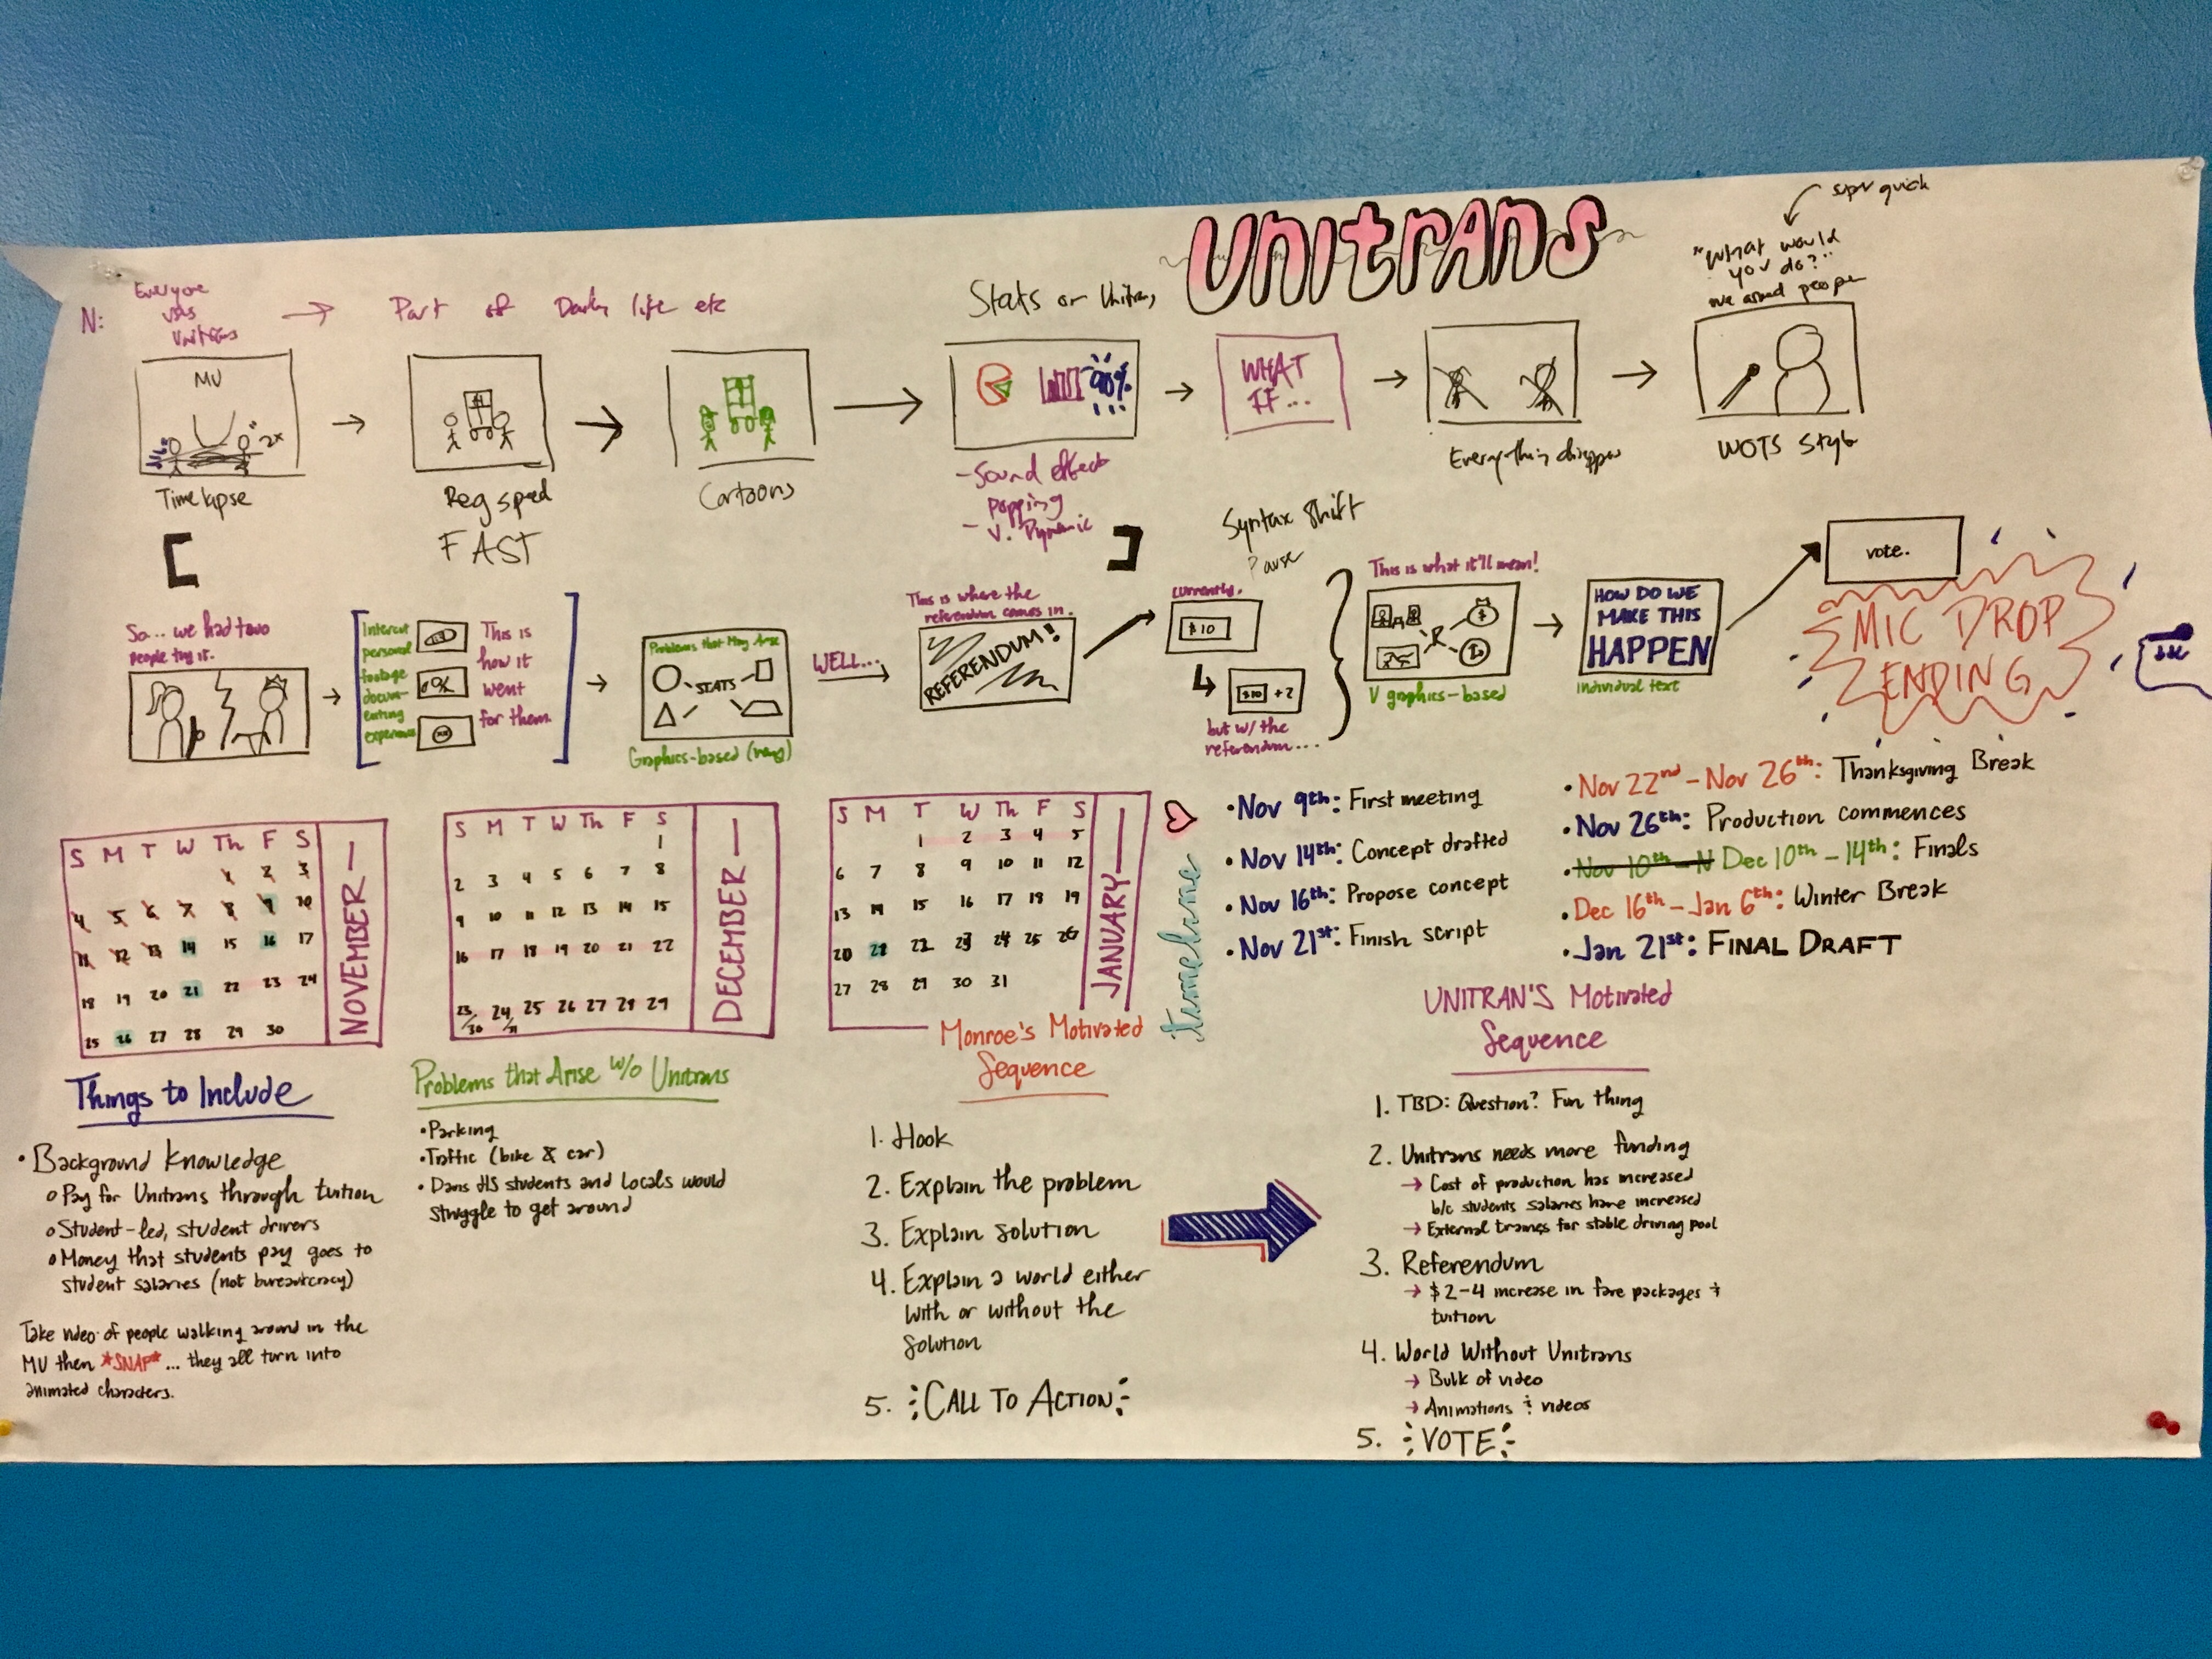 UNITRANS
supr quick
"What would
you do?"
we asked people
N:
Everyone
uses
Unitrans
Part of Daily life etc
Stats on Unitrans
MU
2x
90%
WHAT
IF...
Timelapse
Reg speed
FAST
Cartoons
- Sound effect
popping
- V. Dynamic
Everything disappear
WOTS Style
Syntax Shift
Pause
So... we had two
people try it.
Intercut
personal
footage
docum-
enting
experience
This is
how it
went
for them.
Problems that May Arise
STATS
Graphics-based (many)
WELL...
This is where the
referendum comes in.
REFERENDUM!
currently,
$10
$10 +2
but w/ the
referendum...
This is what it'll mean!
V graphics-based
HOW DO WE
MAKE THIS
HAPPEN
individual text
vote.
MIC DROP
ENDING
S M T W Th F S
1 2 3
4 5 6 7 8 9 10
11 12 13 14 15 16 17
18 19 20 21 22 23 24
25 26 27 28 29 30
NOVEMBER
S M T W Th F S
1
2 3 4 5 6 7 8
9 10 11 12 13 14 15
16 17 18 19 20 21 22
23/30 24/31 25 26 27 28 29
DECEMBER
S M T W Th F S
1 2 3 4 5
6 7 8 9 10 11 12
13 14 15 16 17 18 19
20 21 22 23 24 25 26
27 28 29 30 31
JANUARY
timeline
• Nov 9th: First meeting
• Nov 14th: Concept drafted
• Nov 16th: Propose concept
• Nov 21st: Finish script
• Nov 22nd - Nov 26th: Thanksgiving Break
• Nov 26th: Production commences
• Nov 10th - N Dec 10th - 14th: Finals
• Dec 16th - Jan 6th: Winter Break
• Jan 21st: FINAL DRAFT
Things to Include
• Background Knowledge
o Pay for Unitrans through tuition
o Student-led, student drivers
o Money that students pay goes to
student salaries (not bureaucracy)
Take video of people walking around in the
MU then *SNAP* ... they all turn into
animated characters.
Problems that Arise w/o Unitrans
• Parking
• Traffic (bike & car)
• Davis HS students and locals would
struggle to get around
Monroe's Motivated
Sequence
1. Hook
2. Explain the problem
3. Explain solution
4. Explain a world either
with or without the
solution
5. CALL TO ACTION
UNITRAN'S Motivated
Sequence
1. TBD: Question? Fun thing
2. Unitrans needs more funding
→ Cost of production has increased
b/c students salaries have increased
→ External trames for stable driving pool
3. Referendum
→ $2-4 increase in fare packages &
tuition
4. World Without Unitrans
→ Bulk of video
→ Animations & videos
5. VOTE